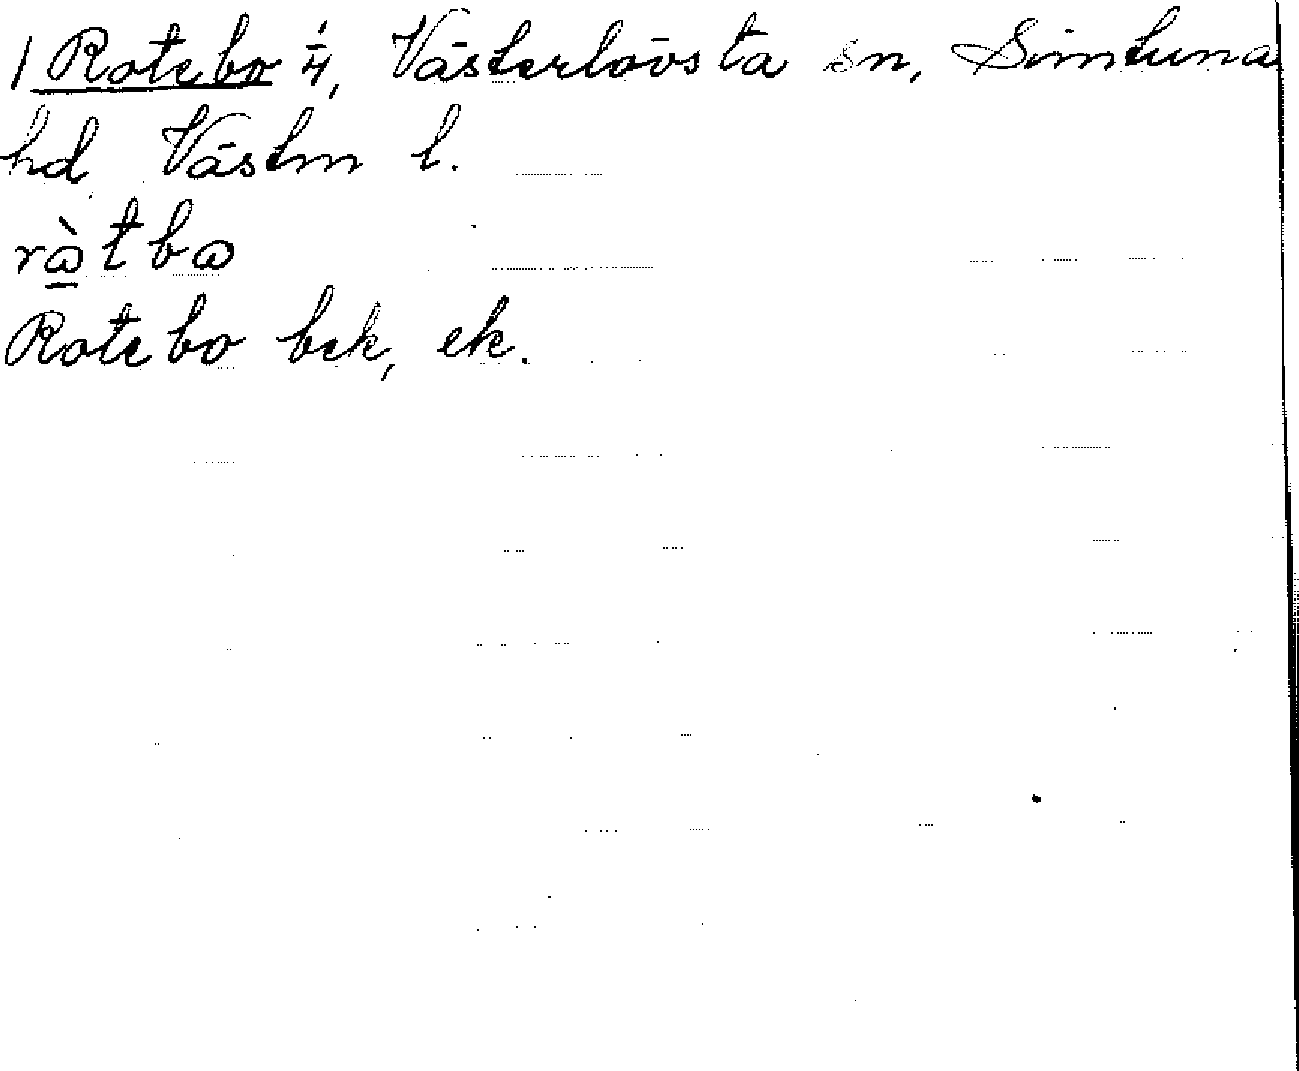 1 Rotebo 1/4, Västerlövsta sn, Simtuna
hd Västm l.
ròtbo
Rotebo bek, ek.